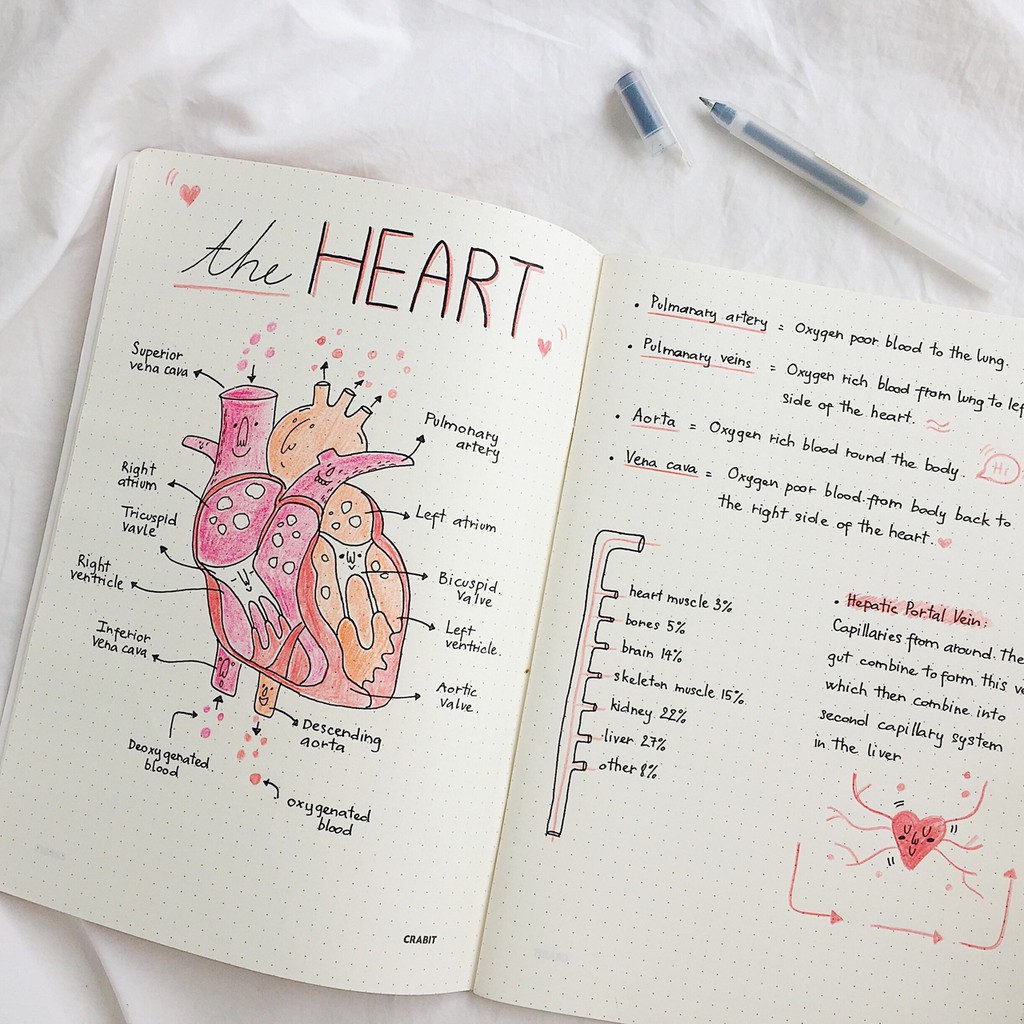 the HEART
Superior
vena cava
Pulmonary
artery
Right
atrium
Left atrium
Tricuspid
vavle
Bicuspid
Valve
Right
ventricle
Left
ventricle.
Inferior
vena cava
Aortic
valve.
Descending
aorta
Deoxygenated
blood
oxygenated
blood
CRABIT
• Pulmanary artery = Oxygen poor blood to the lung.
• Pulmanary veins = Oxygen rich blood from lung to lef
side of the heart.
• Aorta = Oxygen rich blood round the body.
Hi
• Vena cava = Oxygen poor blood.from body back to
the right side of the heart.
heart muscle 3%
bones 5%
brain 14%
skeleton muscle 15%
kidney 22%
liver 27%
other 8%
• Hepatic Portal Vein:
Capillaries from around. The
gut combine to form this ve
which then combine into
second capillary system
in the liver